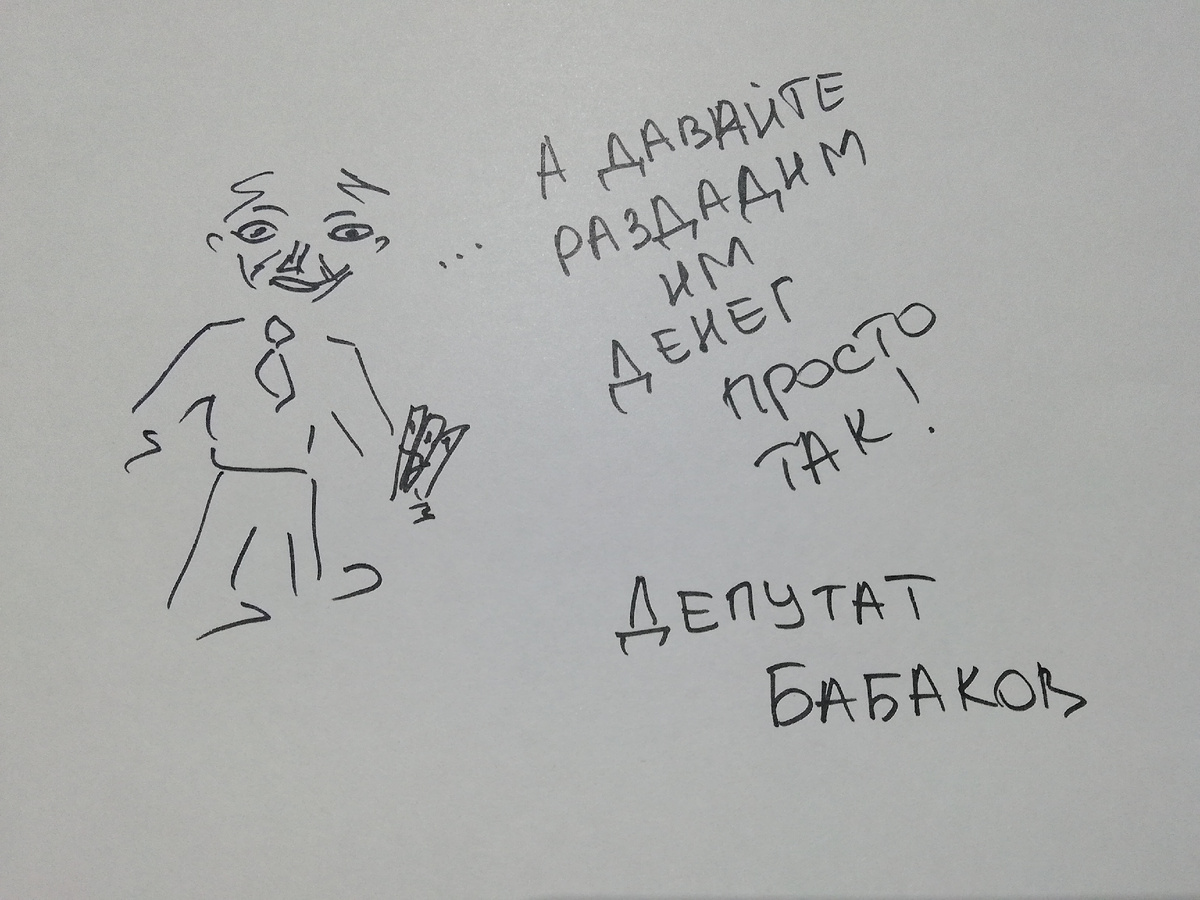 ...
А ДАВАЙТЕ
РАЗДАДИМ
ИМ
ДЕНЕГ
ПРОСТО
ТАК!
ДЕПУТАТ
БАБАКОВ